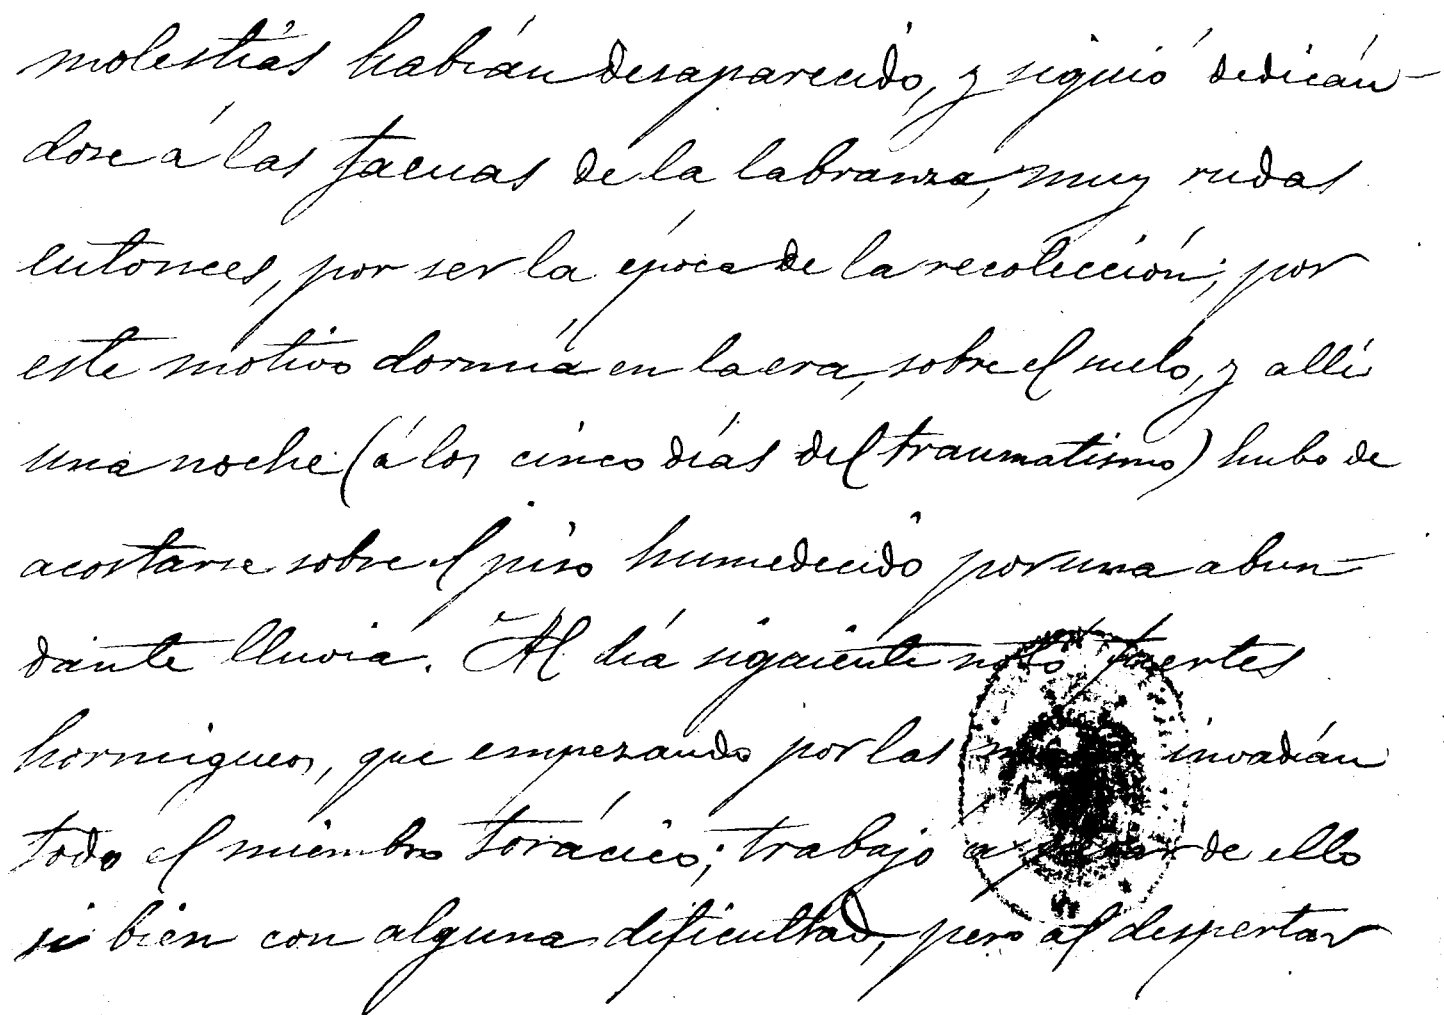 molestias habían desaparecido, y siguió dedicán-
dose á las faenas de la labranza, muy rudas
entonces, por ser la época de la recolección; por
este motivo dormía en la era, sobre el suelo, y allí
una noche (á los cinco días del traumatismo) hubo de
acostarse sobre el piso humedecido por una abun-
dante lluvia. Al día siguiente notó fuertes
hormigueos, que empezando por las invadían
todo el miembro torácico; trabajó á pesar de ello
si bien con alguna dificultad, pero al despertar